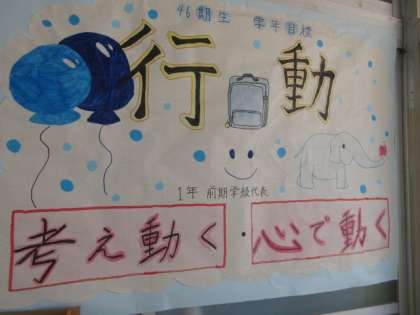 46期生 学年目標
行動
1年 前期学級代表
考え動く・心で動く